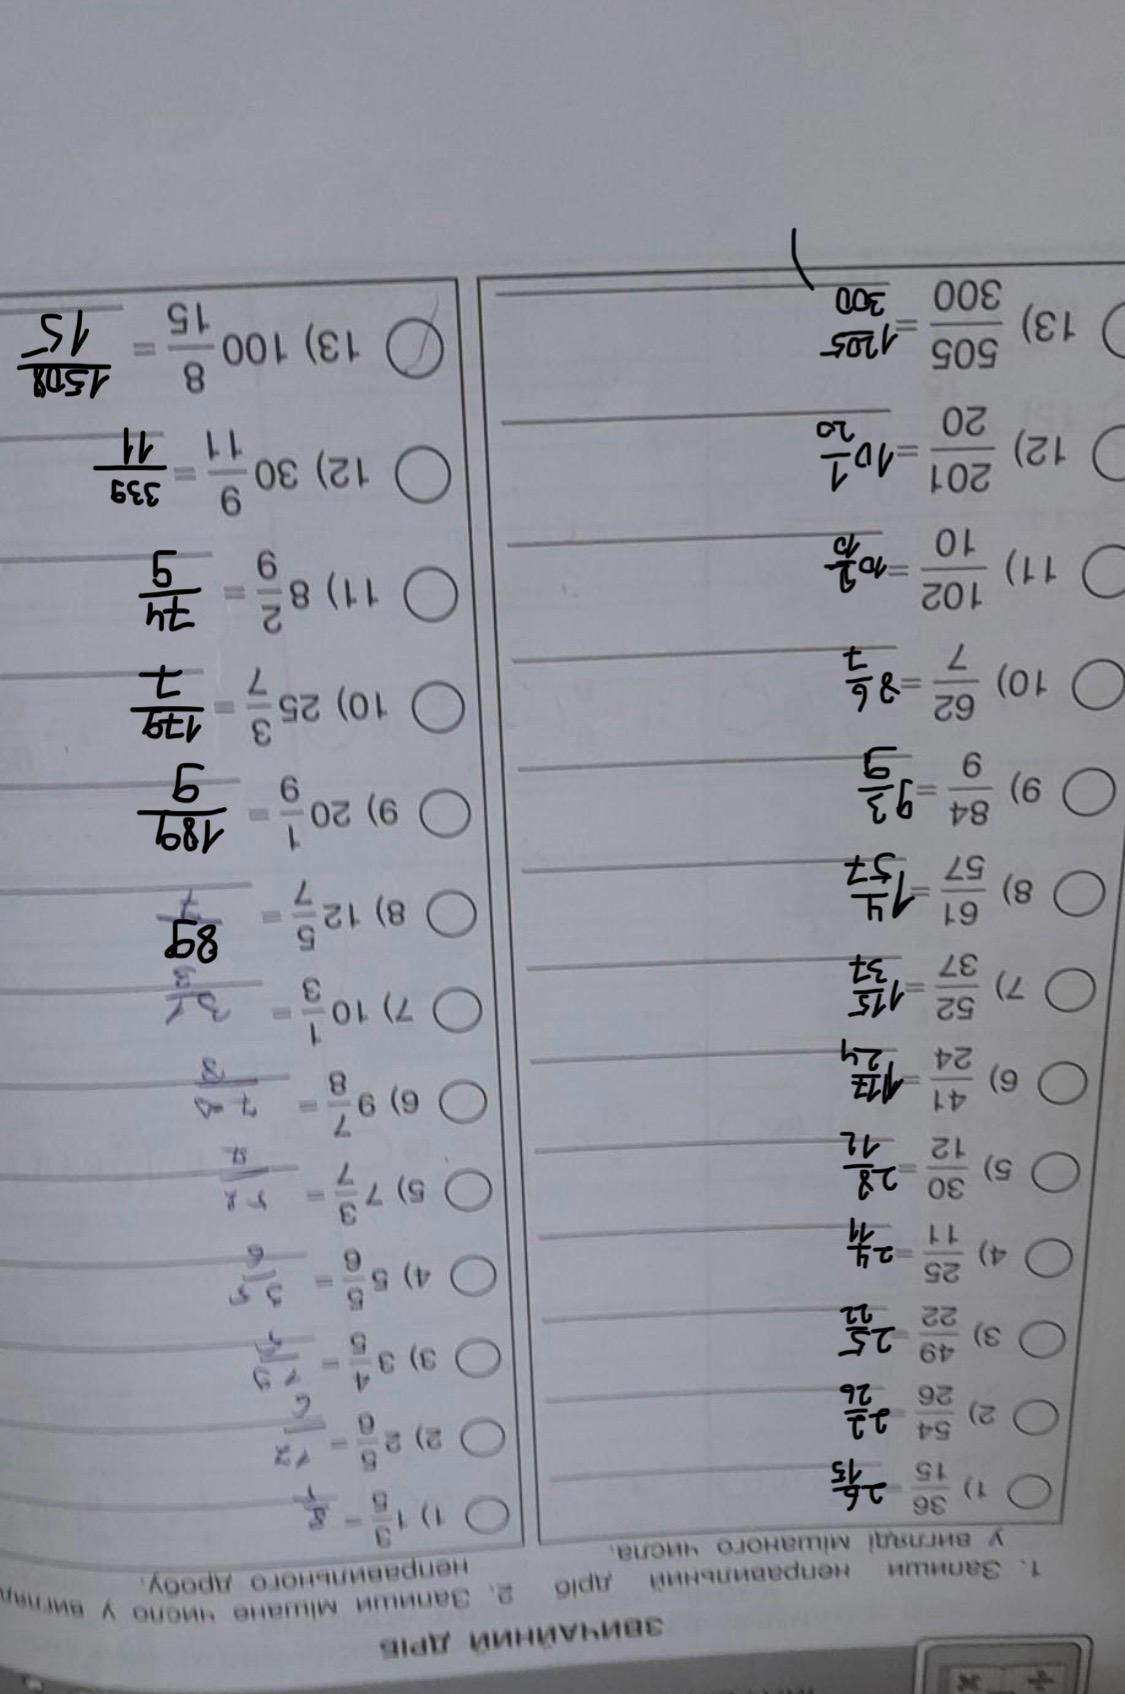 ЗВИЧАЙНИЙ ДРІБ
1. Запиши неправильний дріб
у вигляді мішаного числа.
1) 36/15 = 2 6/15
2) 54/26 = 2 2/26
3) 49/22 = 2 5/22
4) 25/11 = 2 4/11
5) 30/12 = 2 8/12
6) 41/24 = 1 17/24
7) 52/37 = 1 15/37
8) 61/57 = 1 4/57
9) 84/9 = 9 3/9
10) 62/7 = 8 6/7
11) 102/10 = 10 2/10
12) 201/20 = 10 1/20
13) 505/300 = 1 205/300
2. Запиши мішане число у
неправильного дробу.
1) 1 3/5 =
2) 2 5/6 = 17/6
3) 3 4/5 =
4) 5 5/6 = 35/6
5) 7 3/7 =
6) 9 7/8 =
7) 10 1/3 =
8) 12 5/7 = 89/7
9) 20 1/9 = 189/9
10) 25 3/7 = 179/7
11) 8 2/9 = 74/9
12) 30 9/11 = 339/11
13) 100 8/15 = 1508/15